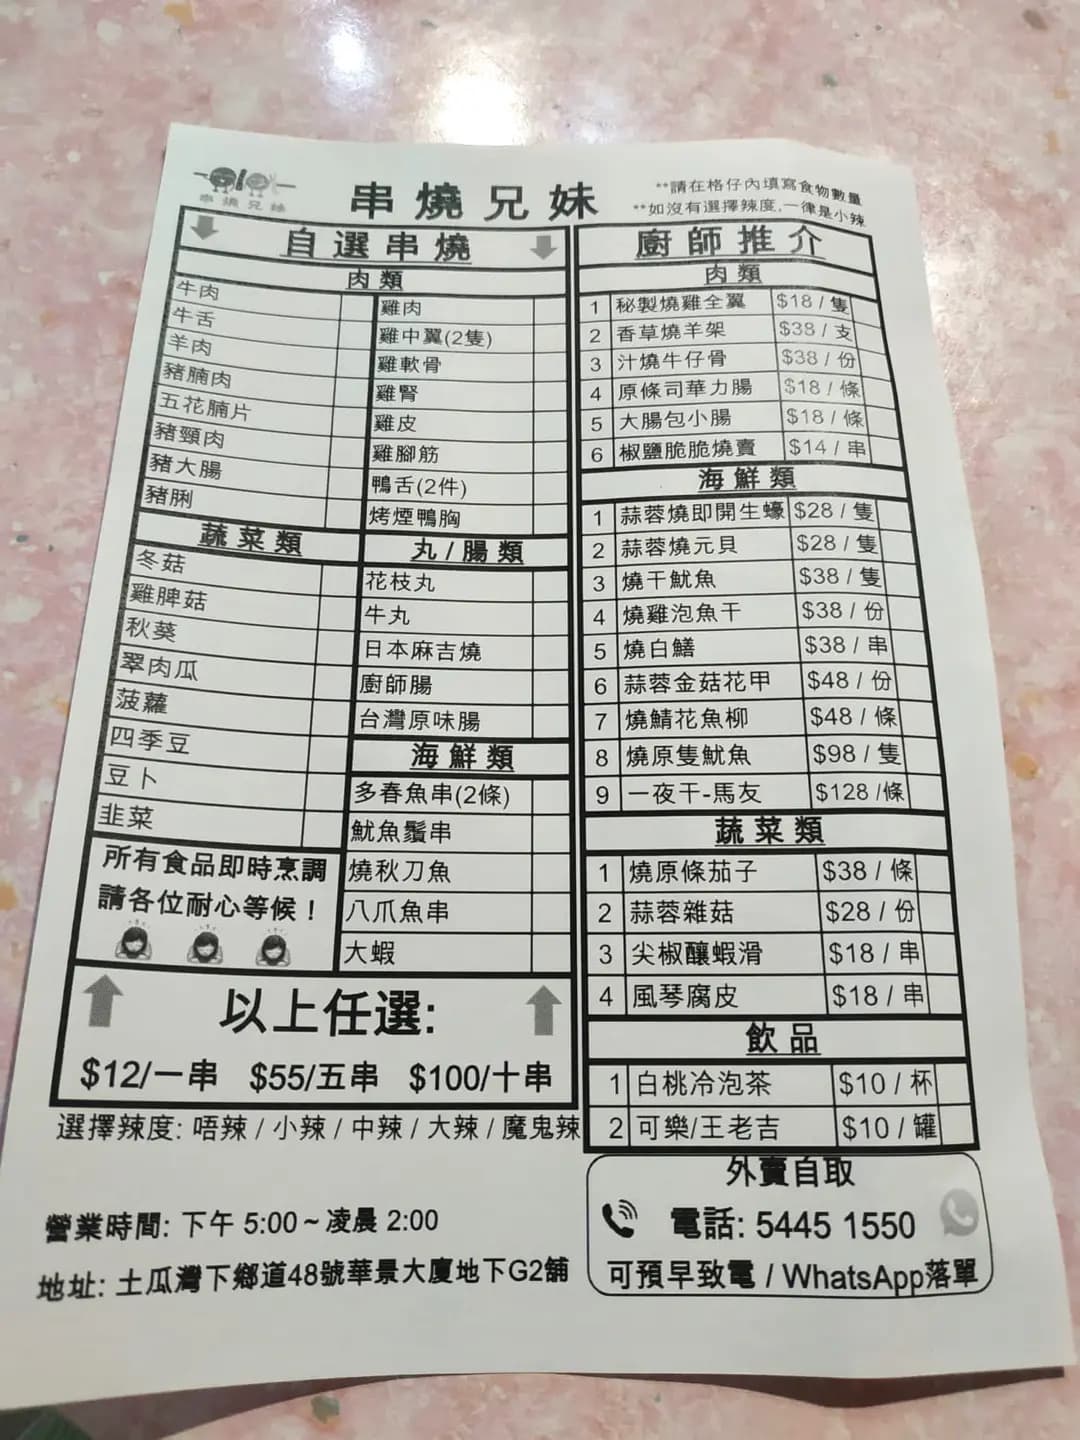 串燒兄妹
串燒兄妹
**請在格仔內填寫食物數量
**如沒有選擇辣度,一律是小辣
自選串燒
肉類
牛肉
牛舌
羊肉
豬腩肉
五花腩片
豬頸肉
豬大腸
豬脷
雞肉
雞中翼(2隻)
雞軟骨
雞腎
雞皮
雞腳筋
鴨舌(2件)
烤煙鴨胸
蔬菜類
冬菇
雞脾菇
秋葵
翠肉瓜
菠蘿
四季豆
豆卜
韭菜
丸/腸類
花枝丸
牛丸
日本麻吉燒
廚師腸
台灣原味腸
海鮮類
多春魚串(2條)
魷魚鬚串
燒秋刀魚
八爪魚串
大蝦
所有食品即時烹調
請各位耐心等候！
以上任選:
$12/一串 $55/五串 $100/十串
選擇辣度: 唔辣 / 小辣 / 中辣 / 大辣 / 魔鬼辣
營業時間: 下午 5:00 ~ 凌晨 2:00
地址: 土瓜灣下鄉道48號華景大廈地下G2舖
廚師推介
肉類
1 秘製燒雞全翼 $18 / 隻
2 香草燒羊架 $38 / 支
3 汁燒牛仔骨 $38 / 份
4 原條司華力腸 $18 / 條
5 大腸包小腸 $18 / 條
6 椒鹽脆脆燒賣 $14 / 串
海鮮類
1 蒜蓉燒即開生蠔 $28 / 隻
2 蒜蓉燒元貝 $28 / 隻
3 燒干魷魚 $38 / 隻
4 燒雞泡魚干 $38 / 份
5 燒白鱔 $38 / 串
6 蒜蓉金菇花甲 $48 / 份
7 燒鯖花魚柳 $48 / 條
8 燒原隻魷魚 $98 / 隻
9 一夜干-馬友 $128 /條
蔬菜類
1 燒原條茄子 $38 / 條
2 蒜蓉雜菇 $28 / 份
3 尖椒釀蝦滑 $18 / 串
4 風琴腐皮 $18 / 串
飲品
1 白桃冷泡茶 $10 / 杯
2 可樂/王老吉 $10 / 罐
外賣自取
電話: 5445 1550
可預早致電 / WhatsApp落單